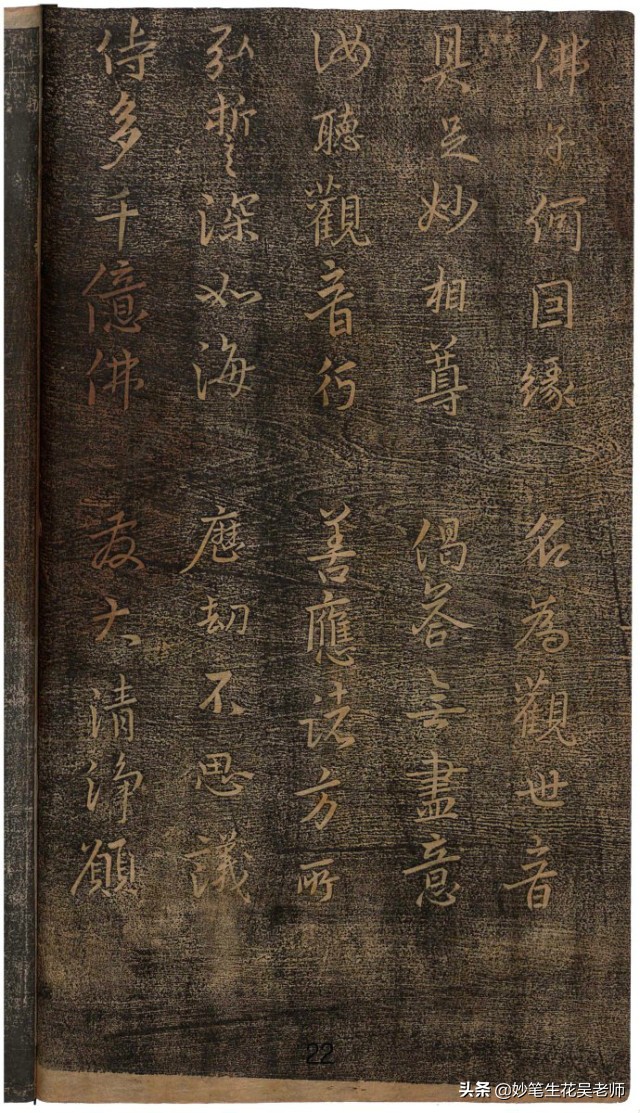 佛子何因緣 名為觀世音
具足妙相尊 偈答無盡意
汝聽觀音行 善應諸方所
弘誓深如海 歷劫不思議
侍多千億佛 發大清淨願
22
头条 @妙笔生花吴老师